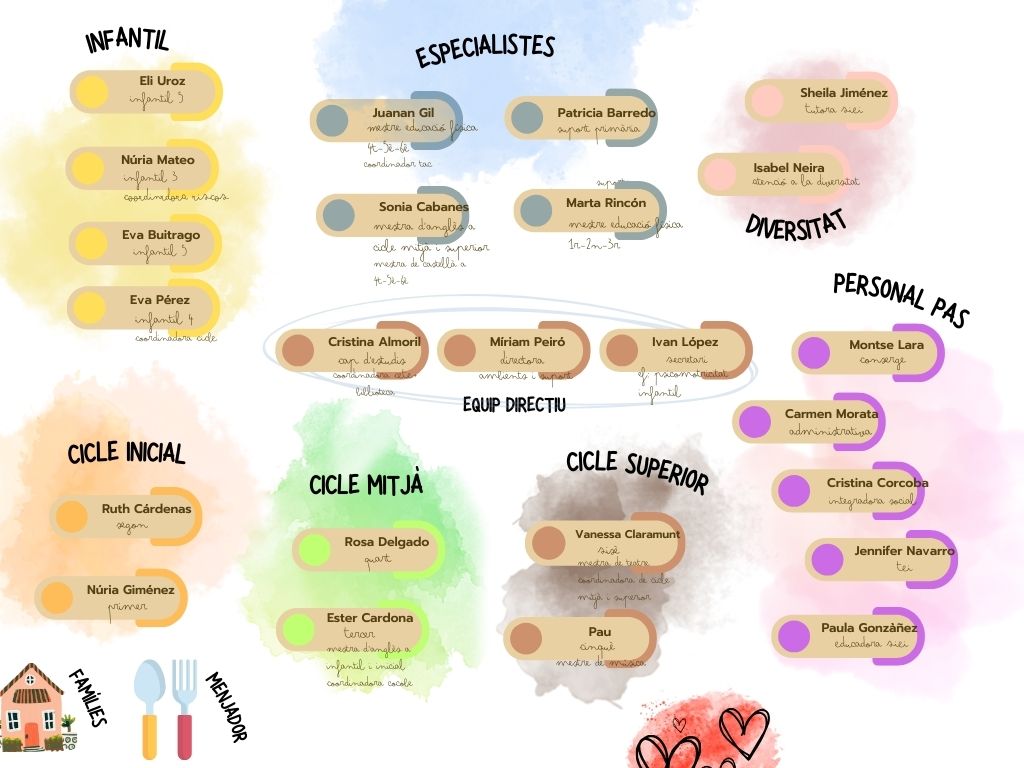 INFANTIL
Eli Uroz
infantil 5
Núria Mateo
infantil 3
coordinadora riscos
Eva Buitrago
infantil 5
Eva Pérez
infantil 4
coordinadora cicle
ESPECIALISTES
Juanan Gil
mestre educació física
4t-5è-6è
coordinador tac
Patricia Barredo
suport primària
Sonia Cabanes
mestra d'anglès a
cicle mitjà i superior
mestra de castellà a
4t-5è-6è
suport
Marta Rincón
mestre educació física
1r-2n-3r
Sheila Jiménez
tutora siei
Isabel Neira
atenció a la diversitat
DIVERSITAT
Cristina Almoril
cap d'estudis
coordinadora
biblioteca
Míriam Peiró
directora
ambients i suport
Ivan López
secretari
ef: psicomotricitat
infantil
EQUIP DIRECTIU
PERSONAL PAS
Montse Lara
conserge
Carmen Morata
administrativa
Cristina Corcoba
integradora social
Jennifer Navarro
tei
Paula Gonzàñez
educadora siei
CICLE INICIAL
Ruth Cárdenas
segon
Núria Giménez
primer
CICLE MITJÀ
Rosa Delgado
quart
Ester Cardona
tercer
mestra d'anglès a
infantil i inicial
coordinadora cocole
CICLE SUPERIOR
Vanessa Claramunt
sisè
mestra de teatre
coordinadora de cicle
mitjà i superior
Pau
cinquè
mestre de música
FAMÍLIES
MENJADOR